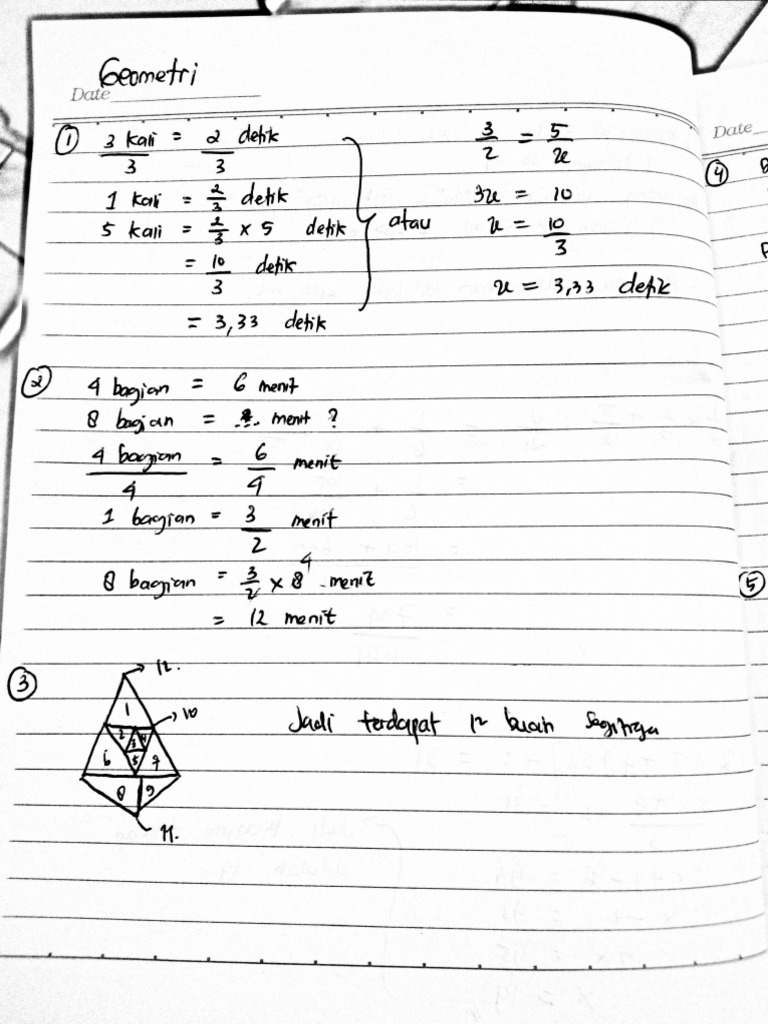 Geometri
Date
① 3 kali / 3 = 2 detik / 3
1 kali = 2/3 detik
5 kali = 2/3 × 5 detik
= 10/3 detik
= 3,33 detik
atau
3/2 = 5/x
3x = 10
x = 10/3
x = 3,33 detik
② 4 bagian = 6 menit
8 bagian = ... menit ?
4 bagian / 4 = 6/4 menit
1 bagian = 3/2 menit
8 bagian = 3/2 × 8 4 menit
= 12 menit
③ 12.
1
10
2 3 4
6 5 7
8 9
11.
Jadi terdapat 12 buah segitiga
Date
④
⑤